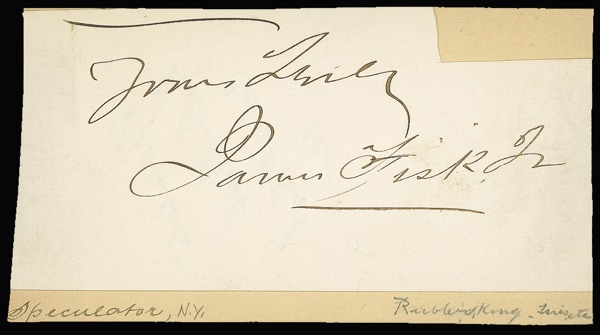 Yours Truly
James Fisk, Jr
Speculator, N.Y.
Rubber King - tires etc